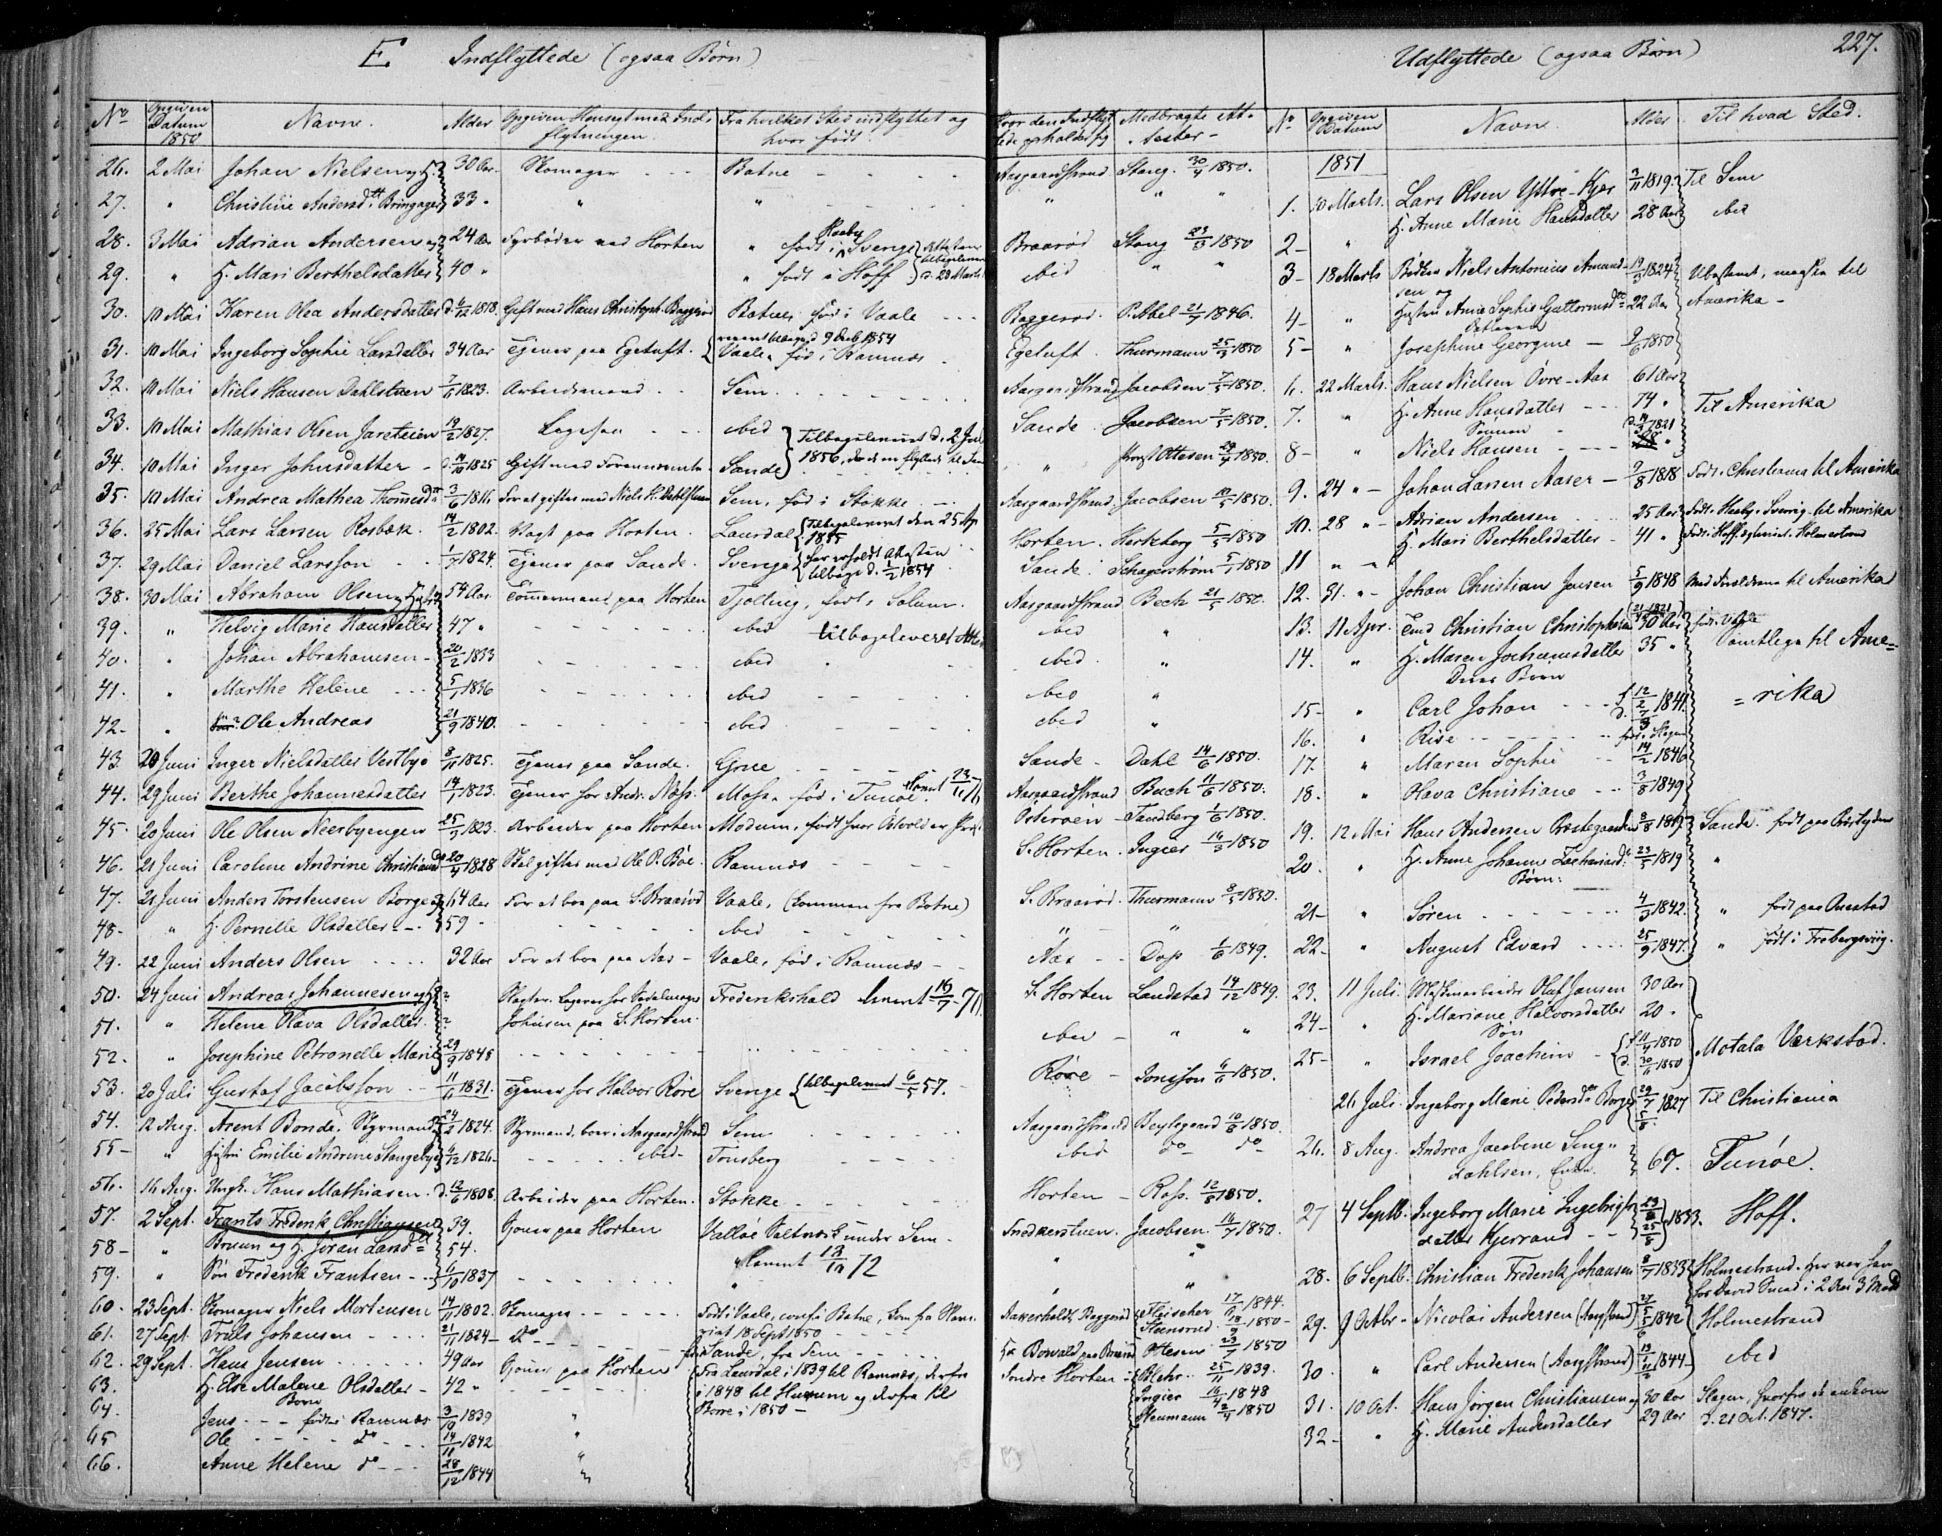 E. Indflyttede (ogsaa Børn)
No Opgiven Datum 1850 Navne. Alder Opgiven Hensigt med Indflytningen. Fra hvilket Sted indflyttet og hvor født. Hvor den Indflyttede opholder sig Medbragte Attester -
26. 2 Mai Johan Nielsen og H. 30 Aar. Skomager - - - Botne - - - Aasgaardstrand Stang. 30/4 1850.
27. " Christine Andersd.tt Bringager 33 " " " " " "
28. 3 Mai Adrian Andersen og 24 Aar Fyrbøder ved Horten " født i Haaby Sverige Braarød Stang 23/3 1850
29. " H. Mari Berthelsdatter 40 " " født i Hoff ibid " "
30. 10 Mai Karen Olea Andersdatter d. 4/12 1818. Gift med Hans Christoph. Baggerød Botne, fød i Vaale - - - Baggerød. P. Abel 21/7 1846.
31. 10 Mai Ingeborg Sophie Larsdatter 34 Aar Tjener paa Egetuft. Vaale, fød i Ramnæs Egetuft. Thurmann 25/3 1850
32. 10 Mai Niels Hansen Dahlstuen 7/6 1823. Arbeidsmand - - Sem. Aasgaardstrand Jacobsen 7/5 1850.
33. 10 Mai Mathias Olsen Jareteien 19/2 1827. Ligesaa - - ibid Sande. Jacobsen 7/5 1850.
34. 10 Mai Inger Johnsdatter - 1825 Gift med Forannævnte Sande Tilbageleveret d. 2 Juli 1856, da de flyttede til Sem " Provst Ottesen 29/4 1850.
35. 10 Mai Andrea Mathea Thomesd.tt 3/6 1816 For at giftes med Niels H. Dahlstuen Sem, fød i Stokke - - Aasgaardstrand. Jacobsen 10/5 1850.
36. 25 Mai Lars Larsen Rosbæk. 14/2 1802. Vagt paa Horten. Laurdal Tilbageleveret den 25 Ap. 1855 Horten. Hertzberg 5/5 1850
37. 29 Mai Daniel Larsson 1824. Tjener paa Sande. Sverige har erholdt Attesten tilbage d. 1/2 1854 Sande. Schagerstrøm 5/1 1850
38. 30 Mai Abraham Olsen og Hustr. 54 Aar Tømmermand paa Horten Tjølling, født i Solum. Aasgaardstrand Bech 21/5 1850.
39. " Helvig Marie Hansdatter 47 " ibid tilbageleveret ibid "
40. " Johan Abrahamsen - 20/2 1833 ibid ibid. "
41. " Marthe Helene - - - 5/1 1836 ibid ibid "
42. " Ole Andreas 21/9 1840. ibid ibid "
43. 20 Juni Inger Nielsdatter Vestbye 8/11 1825. Tjener paa Sande. Grue - - - Sande - Dahl 14/6 1850.
44. 29 Juni Berthe Johannesdatter 14/1 1823. Tjener hos Andr. Næss. Moss, fød i Tunøe. Aasgaardstrand Buch 11/6 1850.
45. 20 Juni Ole Olsen Neerbyengen 25/3 1823. Arbeider paa Horten Modum, født Østerøen - Tandberg 1/6 1850.
46. 21 Juni Caroline Andrine Christiansd. 20/4 1828 Skal giftes med Ole P. Bøe. Ramnæs - - S. Horten. Ingier 14/3 1850
47. 21 Juni Anders Torstensen Borge og 64 Aar For at boe paa S. Braarød Vaale, (kommen fra Botne) S. Braarød. Thurmann 8/5 1850.
48. " H. Pernille Olsdatter - - 59 - ibid " "
49. 22 Juni Anders Olsen - - - - 32 Aar For at boe paa Aas - Vaale, fød i Ramnæs - - Aas - - Dop 1/6 1849.
50. 24 Juni Andreas Johannesen og H. ? Slagter. Logerer hos Sadelmager Frederikshald S. Horten Landstad 14/12 1849.
51. " Helene Olava Olsdatter. ? Johnsen paa S. Horten. ibid " "
52. " Josephine Petronelle Marie 29/9 1845
53. 20 Juli Gustaf Jacobsson - - 11/11 1831. Tjener hos Halvor Røre Sverige tilbageleveret 6/5 57. Røre - Jonsson 4/6 1850.
54. 12 Aug. Arent Bonde. Styrmand 24/2 1824. Styrmand, boer i Aasgaardstrand Sem Aasgaardstrand Beylegaard 10/8 1850.
55 - " Hustru Emilie Andrine Slangebye 4/12 1826 - ibid - Tønsberg ibid do do
56. 14 Aug. Ungk. Hans Mathiasen. d. 12/6 1808. Arbeider paa Horten. Stokke - - - Horten - Ross. 12/8 1850.
57. 2 Sept. Frants Frederik Christiansen 39. Gjører paa Horten Valløe Saltværk under Sem. Snedkerstuen. Jacobsen. 16/7 1850.
58 - " Bruun og H. Joran Larsd.tt 54. " "
59. " Søn Frederik Frantsen - - 6/10 1837 " " "
60. 23 Sept. Skomager Niels Mortensen 14/11 1802. Skomager - - - Født i Vaale, Botne, Aakerholdt, Baggerød Fleischer 17/11 1844.
61. 27 Sept. Truls Johansen - - - - 21/11 1824 - Do - - riat 18 Sept 1850
62. 29 Sept. Hans Jensen - - - - 49 Aar Gjører paa Horten Fra Laurdal i 1839 til Ramnæs, derfra Søndre Horten - Blehr. 25/11 1839.
63. H. Else Malene Olsdatter - 42 " i 1848 til Hurum og derfra til Ingier 16/4 1848
64. Børn Jens - - - fødte i Ramnæs 3/9 1839 " Borre i 1850 - Neumann 1850
65 Ole - - - - do - - - 14/11 1842 "
66. Anne Helene do - - - 28/12 1844 "
Udflyttede (ogsaa Børn) 227.
No Opgiven Datum Navne. Alder Til hvad Sted.
1851
1. 10 Marts. Lars Olsen Yttre-Kjær 3/11 1819. Til Sem
2 - " H. Anne Marie Hansdatter 28 Aar ibid
3 - 18 Marts Bødker Niels Antonius Amundsen og 19/3 1824 Ubestemt, maaskee til
4 - " Hustru Anne Sophie Guttormsd.tt 22 Aar Amerika -
5 - " Josephine Georgine - 9/6 1850
6. 22 Marts. Hans Nielsen Øvre-Aas 61 Aar
7. " H. Anne Hansdatter - - - 74 " Til Amerika
Sønnen
8 - " Niels Hansen - - - 1821
9. 24 " - Johan Larsen Aaser - 9/8 1818 Født i Christiania til Amerika
10. 28 " - Adrian Andersen 25 Aar Født i Haaby i Sverrig - til Amerika
11 " - H. Mari Berthelsdatter - 41 " Født i Hoff Holmestrand
12. 31. " - Johan Christian Jensen 5/9 1848 Med Forældrene til Amerika
13. 11 Apr. Christian Christophersen 30 Aar født i Vaale
14. " H. Maren Jochumsdatter 35 " Samtlige til Ame=
Deres Børn
15 - " Carl Johan - - - f. 12/2 1844. =rika
16. " Rise - - - - - -
17. " Maren Sophie - - 14/2 1846
18. " Olava Christiane - - 3/8 1849
19. 12 Mai Hans Andersen Præstegaarden 8/8 1817 Sande.
20. " H. Anne Johanne Zachariasd.tt 23/5 1819 "
Børn:
21 - " Søren - - - - - - 4/3 1842. " født paa Ouestad
22 - " August Edvard - - - - 25/9 1847. " født i Frebergsviig.
23. 11 Juli. Olaf Jansen 30 Aar
24 - " H. Mariane Halvorsdatter 20 "
Søn
25 - " Israel Joachim - f 11/4 1850 d. 30/6 1850 Motala Værkstad.
26 Juli. Ingeborg Marie Pedersd.tt Borge 29/7 1827 Til Christiania
26. 8 Aug. Andrea Jacobine Ling-
dahlsen, Enke. 67. Tunøe.
27 4 Septb. Ingeborg Marie Ingebrigts
datter Kjerrand - - 1833. Hoff.
28. 6 Septb. Christian Frederik Johansen 8/7 1833 Holmestrand. Her var han
hos David Snead i 2 Aar 3 Md
29. 9 Octbr - Nicolai Andersen (Aasgstrand) 1842 Holmestrand
30. " Carl Andersen (Aasgstrand) 1844 - ibid
31. 10 Oct. Hans Jørgen Christiansen og 30 Aar Slagen, hvorfra de ankom
32 - " H. Marie Andersdatter 29 Aar d. 21 Oct. 1847.